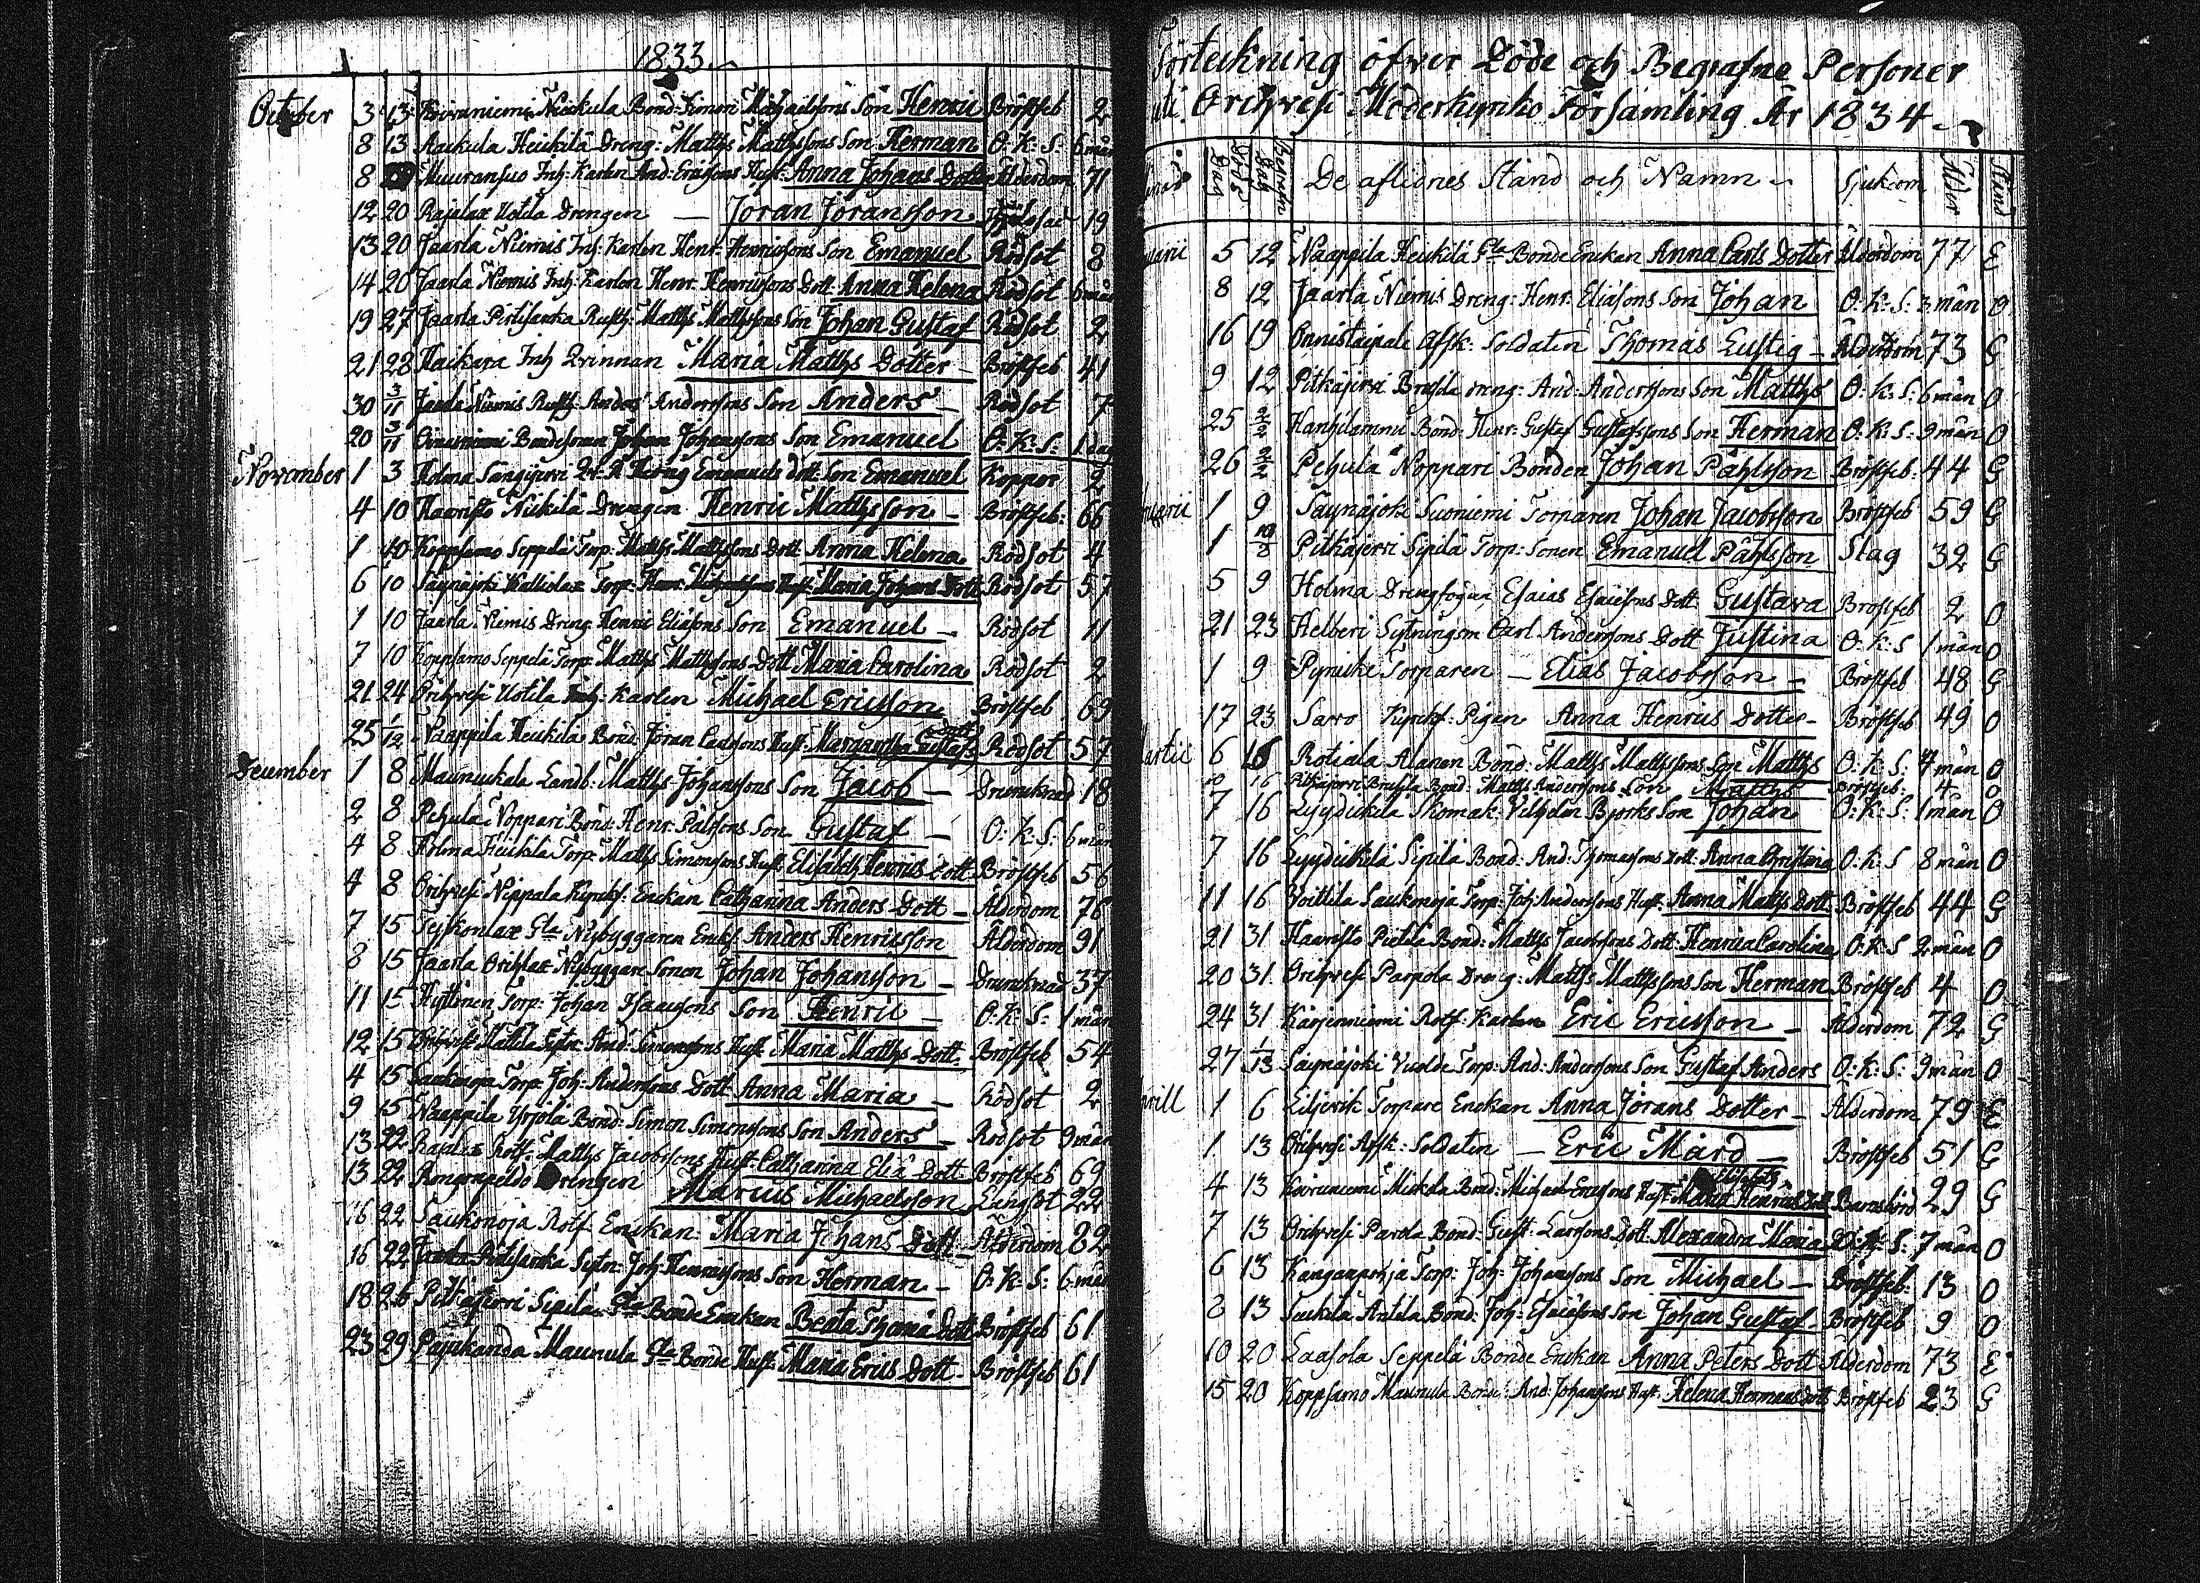 1833
October 3 13 Koivuniemi Nickula Bond: Simon Michaelssons Son Henric Bröstfeb 2
8 13 Heikkilä Dreng: Matths Matthssons Son Herman O: K: S: 6 mån
8 Muuransuo Inh: Karlen And: Ericssons Hust: Anna Johans Dotter Ålderdom 71
12 20 Rajalax Uotila Drengen — Jöran Jöransson 19
13 20 Jaarla Niemis Inh: Karlen Henr: Henricssons Son Emanuel Rödsot 8
14 20 Jaarla Niemis Inh: Karlen Henr: Henricssons Dott: Anna Helena Rödsot 6 mån
19 27 Jaarla Pirtisanka Rusth: Matths Matthssons Son Johan Gustaf Rödsot 2
21 28 Haikara Inh Qvinnan Maria Matths Dotter — Bröstfeb 41
30 3/11 Jaarla Niemis Rusth Anders Anderssons Son Anders — Rödsot 7
20 3/11 Bondesonen Johan Johanssons Son Emanuel O: K: S: 1 dag
November 1 3 Holma Emanuels Dott: Son Emanuel Koppor 2
4 10 Haavisto Heikilä Drengen Henric Matthsson — Bröstfeb: 66
1 10 Koppsamo Seppälä Torp: Matths Matthssons Dott Anna Helena Rödsot 4
6 10 Säynäjoki Torp: Henr: Hust: Maria Johans Dott Rödsot 57
1 10 Jaarla Niemis Dreng Henric Eliæsons Son Emanuel — Rödsot 11
7 10 Koppsamo Seppelä Torp: Matths Matthssons Dott Maria Carolina Rödsot 2
21 24 Orihvesi Uotila Inh: Karlen Michael Ericsson Bröstfeb 69
25 1/12 Naappila Heikilä Bond Jöran Carlssons Hust: Margaretha Gustafs Dott Rödsot 57
December 1 8 Maunukala Landb: Matths Johanssons Son Jacob — Drunknad 18
2 8 Pehula Noppari Bond: Henr: Pålssons Son Gustaf — O: K: S: 6 mån
4 8 Holma Heikilä Torp: Matths Simonssons Hust: Elisabeth Henrics Dott Bröstfeb 56
4 8 Orihvesi Näppälä Enckan Catharina Anders Dott — Ålderdom 76
7 15 Teiskonlax Gla Nybyggaren Anders Henricsson Ålderdom 91
8 15 Jaarla Orihlax Nybyggare Sonen Johan Johansson — Drunknad 37
11 15 Hyttinen Torp: Johan Isaacssons Son Henric — O: K: S: 1 mån
12 15 Orihvesi And: Simonssons Hust: Maria Matths Dott. Bröstfeb 54
4 15 Saukonoja Torp: Joh: Anderssons Dott Anna Maria — Rödsot 2
9 15 Naappila Yrjölä Bond: Simon Simonssons Son Anders — Rödsot 9 mån
13 22 Rajalax Rotf: Matths Jacobssons Hust: Catharina Eliæ Dott Bröstfeb 69
13 22 Drengen Marcus Michaelsson Lungsot 22
16 22 Saukonoja Rotf Enckan: Maria Johans Dott — Ålderdom 82
16 22 Jaarla Pirtisanka Sytn: Joh: Henricssons Son Herman — O: K: S: 6 mån
18 26 Pitkäjervi Sipilä Gla Bonde Enckan Beata Thomæ Dott Bröstfeb 61
23 29 Pajukanda Maunula Gla Bonde Hust: Maria Erics Dott — Bröstfeb 61
Förteckning öfver Döde och Begrafne Personer
uti Orihvesi Moderkyrko Församling År 1834.
Döds Dag Begrafn Dag De aflidnes Stånd och Namn Sjukdom Ålder Stånd
5 12 Naappila Heikilä Gla Bonde Enckan Anna Carls Dotter Ålderdom 77 E
8 12 Jaarla Niemis Dreng: Henr: Eliæsons Son Johan O: K: S: 3 mån O
16 19 Onnistaipale Afsk: Soldaten Thomas Lustig — Ålderdom 73 G
9 12 Pitkäjervi Dreng: And: Anderssons Son Matths O: K: S: 6 mån O
25 2/2 Bond: Henr: Gustaf Gustafssons Son Herman O: K: S: 9 mån O
26 2/2 Pehula Noppari Bonden Johan Påhlsson Bröstfeb: 44 G
1 9 Säynäjoki Suoniemi Torparen Johan Jacobsson Bröstfeb 59 G
1 Pitkäjervi Sipilä Torp: Sonen Emanuel Påhlsson Slag 32 G
5 9 Holma Drengfogden Esaias Esaiæsons Dott Gustava Bröstfeb 2 O
21 23 Helberi Sytningsm Carl Anderssons Dott Justina O: K: S 1 mån O
1 9 Torparen — Elias Jacobsson — Bröstfeb 48 G
17 23 Sarvo Pigan Anna Henrics Dotter — Bröstfeb 49 O
6 16 Alanen Bond: Matths Matthssons Son Matths O: K: S: 7 mån O
10 16 Pitkäjervi Bond: Matths Anderssons Son Matths Bröstfeb: 4 O
7 16 Lyydikkilä Skomak: Vilhelm Björks Son Johan O: K: S: 1 mån O
7 16 Lyydikkilä Sipilä Bond: And: Thomassons Dott: Anna Christina O: K: S 8 mån O
11 16 Voittila Saukonoja Torp: Joh: Anderssons Hust: Anna Matths Dott Bröstfeb 44 G
21 31 Haavisto Pietilä Bond: Matths Jacobssons Dott: Henrica Carolina O: K: S 2 mån O
20 31 Orihvesi Parpola Dreng: Matths Matthssons Son Herman Bröstfeb 4 O
24 31 Karjenniemi Rotf: Karlen Eric Ericsson — Ålderdom 72 G
27 Säynäjoki Torp: And: Anderssons Son Gustaf Anders O: K: S: 9 mån O
1 6 Eiljerik Torpare Enckan Anna Jörans Dotter — Ålderdom 79 E
1 13 Orihvesi Afsk: Soldaten — Eric Mård — Bröstfeb 51 G
4 13 Koivuniemi Mickola Bond: Michael Ericssons Hust: Elisabeth Henrics Dott Barnsbörd 29 G
7 13 Orihvesi Parola Bond: Gust: Larssons Dott: Alexandra Maria O: K: S: 7 mån O
6 13 Torp: Joh: Johanssons Son Michael — Bröstfeb: 13 O
8 13 Suckila Antila Bond: Joh: Esaiæsons Son Johan Gustaf — Bröstfeb 9 O
10 20 Laasola Seppelä Bonde Enckan Anna Peters Dott Ålderdom 73 E
15 20 Koppsamo Maunula Bond: And: Johanssons Hust: Helena Hermans Dott Bröstfeb 23 G